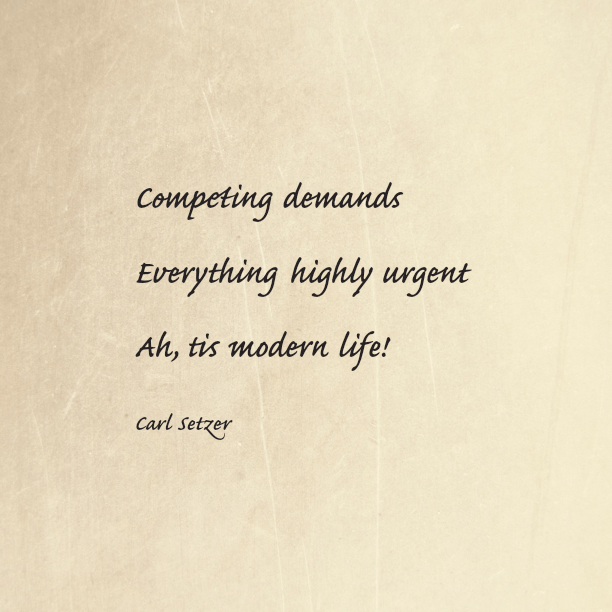 Competing demands
Everything highly urgent
Ah, tis modern life!
Carl Setzer